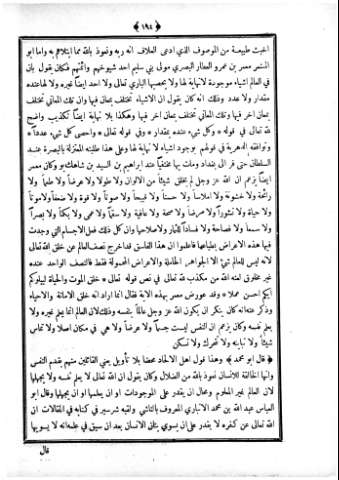 ﴿ ١٩٤ ﴾
اخبث طبيعة من الموصوف الذي ادعى العلاف انه ربه ونعوذ بالله مما ابتلاهم به واما ابو
المعتمر معمر بن عمرو العطار البصري مولى بني سليم احد شيوخهم وائمتهم فكان يقول بان
في العالم اشياء موجودة لا نهاية لها ولا يحصيها الباري تعالى ولا احد ايضاً غيره ولا لها عنده
مقدار ولا عدد وذلك انه كان يقول ان الاشياء تختلف بمعان فيها وان تلك المعاني تختلف
بمعان اخر فيها وتلك المعاني تختلف بمعان اخر فيها وهكذا بلا نهاية ايضاً تكذيب واضح
لله تعالى في قوله * وكل شيء عنده بمقدار * وفي قوله تعالى * واحصى كل شيء عدداً *
وتوافقه الدهرية في قولهم بوجود اشياء لا نهاية لها وعلى هذا طلبته المعتزلة بالبصرة عند
السلطان حتى فر الى بغداد ومات بها مختفياً عند ابراهيم بن السندي بن شاهك وكان معمر
ايضاً يزعم ان الله عز وجل لم يخلق شيئاً من الالوان ولا طولا ولا عرضاً ولا طعماً ولا
رائحة ولا خشونة ولا املاساً ولا حسناً ولا قبحاً ولا صوتاً ولا قوة ولا ضعفاً ولا موتاً
ولا حياة ولا نشوراً ولا مرضاً ولا صحة ولا عافية ولا سقماً ولا عمى ولا بكماً ولا بصراً
ولا سمعاً ولا فصاحة ولا فساداً للثمار ولا صلاحها وان كل ذلك فعل الاجسام التي وجدت
فيها هذه الاعراض بطباعها فاعلموا ان هذا الفاسق قد اخرج نصف العالم عن خلق الله تعالى
لانه ليس للعالم شيء الا الجواهر الحاملة والاعراض المحمولة فقط فالنصف الواحد عنده
غير مخلوق لعنه الله من مكذب لله تعالى في نص قوله تعالى * خلق الموت والحياة ليبلوكم
ايكم احسن عملا * وقد عورض معمر بهذه الآية فقال انما اراد انه خلق الاماتة والاحياء
وذكر عنه انه كان ينكر ان يكون الله عز وجل عالماً بنفسه وذلك لان العالم انما يعلم غيره ولا
يعلم نفسه وكان يزعم ان النفس ليست جسماً ولا عرضاً ولا هي في مكان اصلا ولا تماس
شيئاً ولا تباينه ولا تتحرك ولا تسكن
﴿ قال ابو محمد ﴾ وهذا قول اهل الالحاد محضا بلا تأويل يعني القائلين منهم بقدم النفس
وانها الخالقة للانسان نعوذ بالله من الضلال وكان يقول ان الله تعالى لا يعلم نفسه ولا يجهلها
لان العالم غير المعلوم ومحال ان يقدر على الموجودات او ان يعلمها او ان يجهلها وقال ابو
العباس عبد الله بن محمد الانباري المعروف بالناشي ولقبه شرسير في كتابه في المقالات ان
الله تعالى عن كفره لا يقدر على ان يسوي بنان الانسان بعد ان سبق في علمه انه لا يسويها
قال